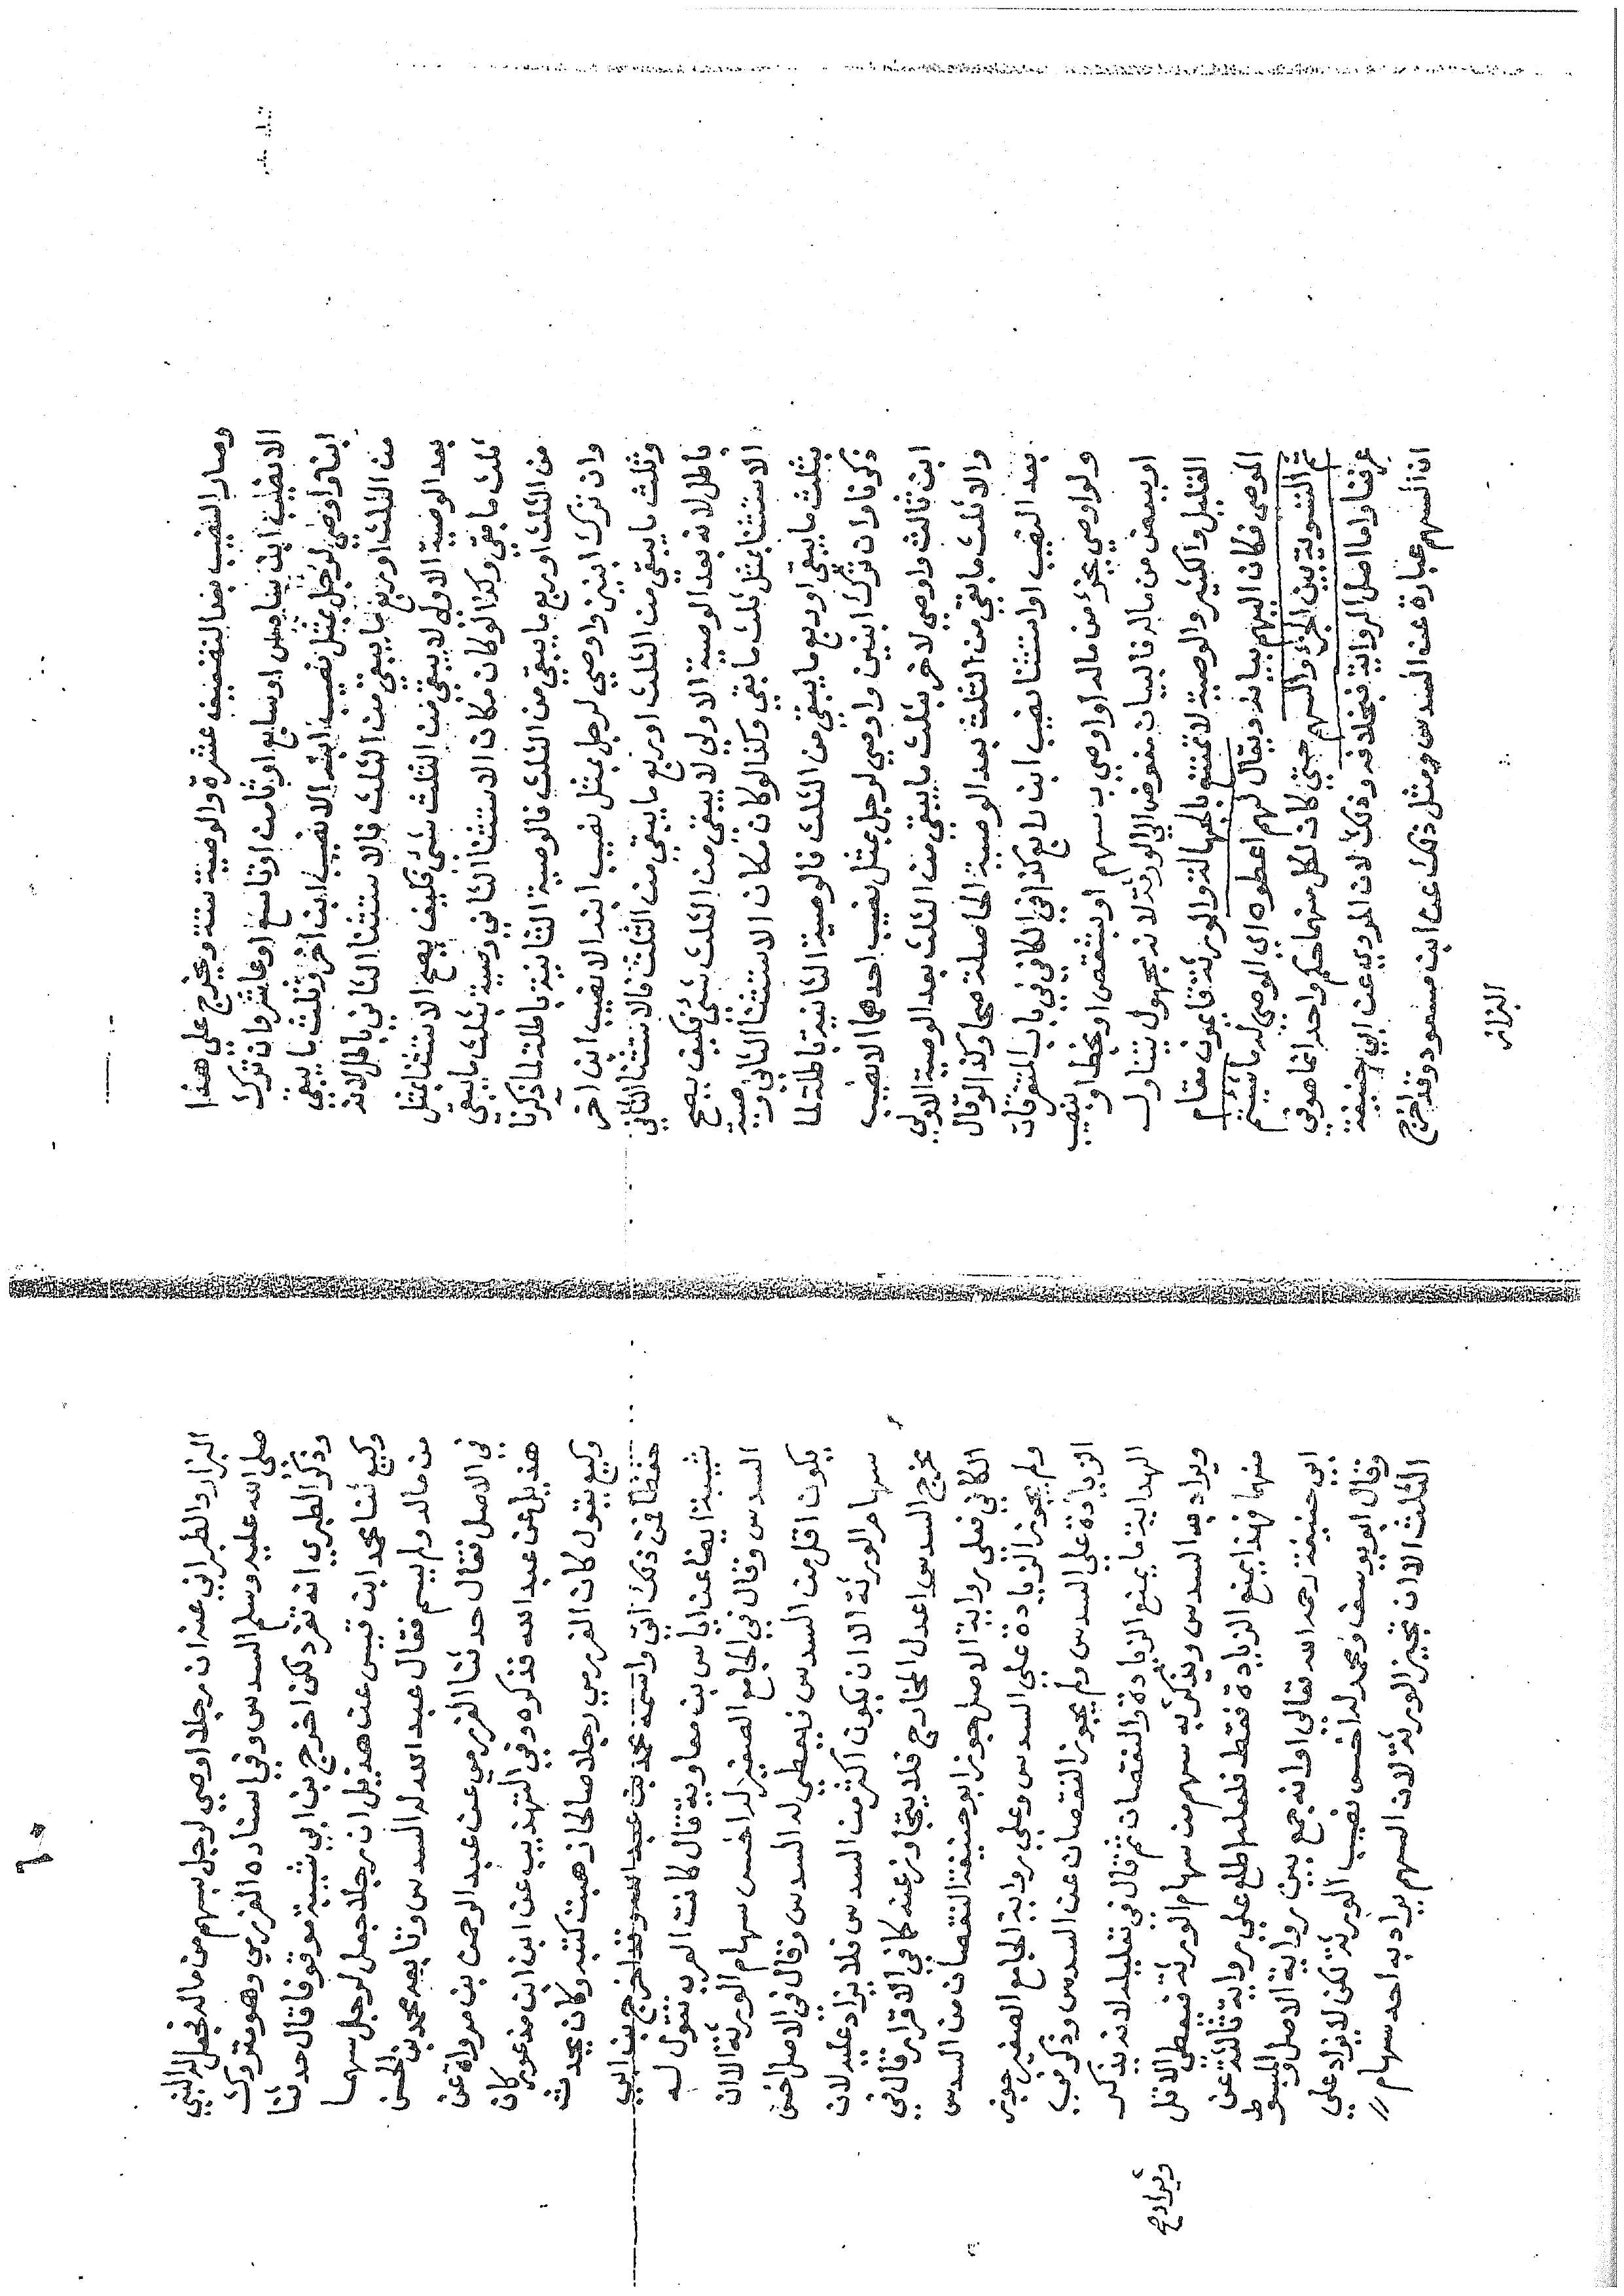 وصار النصيب بعد التضعيف عشرة والوصية ستة ويخرج على هذا
الا نصيب ابن سادس او سابع او ثامن او تاسع او عاشر وان ترك
ابنا واوصي لرجل بمثل نصيب ابنه الا نصيب ابن اخر وثلث ما يبقي
من الثلث او ربع ما يبقي من الثلث فالاستثنا الثاني باطل لانه
بعد الوصية الاولي لا يبقي من الثلث شيء فكيف يصح الاستثنا بمثل
ثلث ما بقي وكذا لوكان مكان الاستثنا الثاني وصية بثلث ما يبقي
من الثلث او ربع ما يبقي من الثلث فالوصية الثانية باطلة لما ذكرنا
وان ترك ابنين واوصي لرجل بمثل نصيب ابنه الا نصيب ابن اخر
وثلث ما يبقي من الثلث او ربع ما يبقي من الثلث فالاستثنا الثاني
باطل لانه بعد الوصية الاولي لا يبقي من الثلث شيء فكيف يصح
الاستثنا بمثل ثلث ما بقي وكذا لوكان مكان الاستثنا الثاني وصية
بثلث ما يبقي او ربع ما يبقي من الثلث فالوصية الثانية باطلة لما
ذكرنا وان ترك ابنين واوصي لرجل بمثل نصيب احدهما الا نصيب
ابن ثالث واوصي لاخر بثلث ما يبقي من الثلث بعد الوصية الاولي
والا ثلث ما بقي من الثلث بعد الوصية الحاصلة صحا وكذا لو قال
بعد النصيب او استثنا نصيب ابن رابع كذا في الكافي في باب المتفرقات
ولو اوصي بجزء من ماله او اوصي بسهم او بشقص او بحظ او بنصيب
او ببعض من ماله فالبيان مفوض الي الورثة لانه مجهول يتناول
القليل والكثير والوصية لا تمتنع بالجهالة والورثة قايمون مقام
الموصي فكان اليهم بيانه ويقال لهم اعطوه اي الموصي له ما شئتم
ثم التسوية بين الجزء والسهم حتي كان لكل منهما حكم واحد انما هو في
عرفنا واما اصل الرواية فبخلافه وذلك لان المروي عن ابي حنيفة
ان السهم عبارة عن السدس ومثل ذلك عن ابن مسعود وقد اخرج
البزار
٦٠
البزار والطبراني عنه ان رجلا اوصي لرجل بسهم من ماله فجعل له النبي
صلي الله عليه وسلم السدس وفي اسناده العزرمي وهو متروك
وذكر الطبري انه تفرد لكن اخرج بن ابي شيبة موقوفا قال حدثنا
وكيع ثنا محمد ابن قيس عن هذيل ان رجلا جعل لرجل سهما
من ماله ولم يسم فقال عبد الله له السدس وتابعه محمد بن الحسن
في الاصل فقال حدثنا العزرمي عن عبد الرحمن بن مروان عن
هذيل عن عبد الله فذكره وفي التهذيب عن ابن مذعور كان
وكيع يقول كان العزرمي رجلا صالحا ذهبت كتبه وكان يحدث
حفظا فمن ذلك اتي واسمه محمد بن عبيد الله وقد اخرج بن ابي
شيبة ايضا عن اياس بن معاوية قال كانت العرب تقول له
السدس وقال في الجامع الصغير له اخس سهام الورثة الا ان
يكون اقل من السدس فيعطي له السدس وقال في الاصل اخس
سهام الورثة الا ان يكون اكثر من السدس فلا يزاد عليه لان
مخرج السدس اعدل المخارج فلا يتجاوز عنه كما في الاقرار قال في
الكافي فعلي رواية الاصل جوز ابو حنيفة النقصان من السدس
ولم يجوز الزيادة علي السدس وعلي رواية الجامع الصغير جوز
الزيادة علي السدس ولم يجوز النقصان عن السدس وذكر في
الهداية ما يمنع الزيادة والنقصان ثم قال في تعليله لانه يذكر
ويراد به السدس ويذكر به سهم من سهام الورثة فيعطي الاقل
منهما فهذا يمنع الزيادة فقط فلعله اطلع علي رواية ثالثة عن
ابي حنيفة رحمه الله تعالي او انه جمع بين رواية الاصل والمبسوط
وقال ابو يوسف ومحمد له اخس نصيب الورثة لكن لا يزاد علي
الثلث الا ان تجيز الورثة لان السهم يراد به احد سهام
ويراد